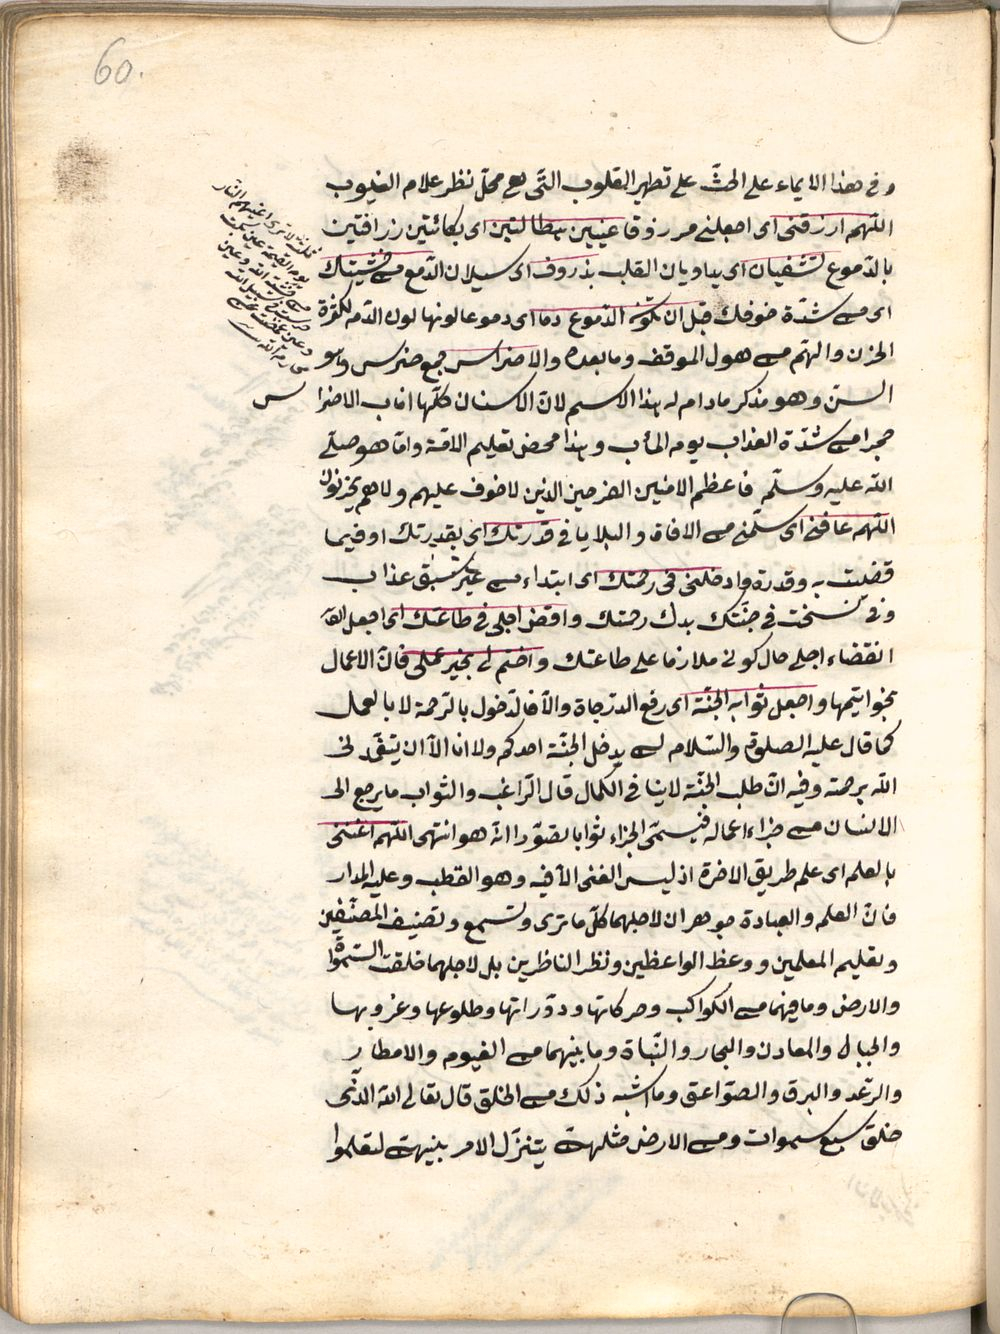 60.
وفى هذا الايماء على الحثّ على تطهير القلوب الّتى هى محلّ نظر علام الغيوب
اللّهم ارزقنى اى اجعلنى مرزوقا عينين هطالتين اى بكائتين زرافتين
بالدّموع تشفيان اى يداويان القلب بذروف اى سيلان الدّمع من خشيتك
اى من شدّة خوفك قبل ان تكون الدّموع دما اى دموعا لونها لون الدّم لكثرة
الحزن والهمّ من هول الموقف وما بعده والاضراس جمع ضرس وهو
السنّ وهو مذكر مادام له هذا الاسم لانّ الاسنان كلّها اناب الاضرا
س
جمرا من شدّة العذاب يوم المأب وهذا محض تعليم الامّة وامّا هو صلّى
اللّه عليه وسلّم فاعظم الامنين الفرحين الذين لا خوف عليهم ولا هم يحزنون
اللّهم عافنى اى سلّمنى من الافات والبلايا فى قدرتك اى بقدرتك او فيما
قضيت به وقدرة وادخلنى فى رحمتك اى ابتداء من غير سبق عذاب
وفى نسخت فى جنّتك بدل رحمتك واقض اجلى فى طاعتك اى اجعل
انقضاء اجلى حال كونى ملازما على طاعتك واختم لى بخير عملى فانّ الاعمال
بخواتيمها واجعل ثوابه الجنّة اى رفع الدّرجات والّا فالدّخول بالرّحمة لا بالعمل
كما قال عليه الصلوة والسّلام لن يدخل الجنّة احدكم ولا انا الّا ان يتغمّدنى
اللّه برحمته وفيه انّ طلب الجنّة لا ينافى الكمال قال الرّاغب والثواب ما يرجع الى
الانسان من جزاء اعماله فيسمّى الجزاء ثوابا تصوّرا انّه هو انتهى اللّهم اغننى
بالعلم اى علم طريق الاخرة اذ ليس الغنى الّا فيه وهو القطب وعليه المدار
فانّ العلم والعبادة جوهران لاجلهما كلّ ما ترى وتسمع وتصنيف المصنّفين
وتعليم المعلمين ووعظ الواعظين ونظر الناظرين بل لاجلهما خلقت السّموا
والارض وما فيهما من الكواكب وحركاتها ودوّراتها وطلوعها وغروبها
والجبال والمعادن والبحار والنّبات وما بينهما من الغيوم والامطار
والرّعد والبرق والصّواعق وما اشبه ذلك من الخلق قال تعالى اللّه الّذى
خلق سبع سموات ومن الارض مثلهنّ يتنزّل الامر بينهنّ لتعلموا
ثلثة لا ترى اعينهم النار
يوم القيمة عين بكت
من خشية اللّه وعين
حرست فى سبيل اللّه
وعين غضت عن
محارم اللّه